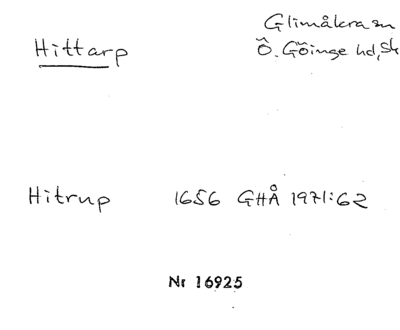 Hittarp
Glimåkra sn
Ö. Göinge hd, Sk
Hitrup 1656 GHÅ 1971:62
Nr 16925